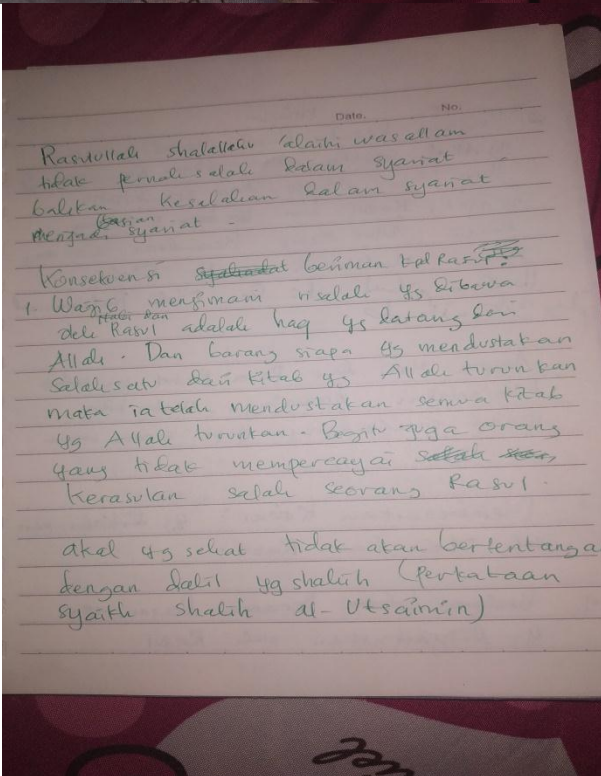 Date. No.
Rasulullah shalallahu 'alaihi wasallam
tidak pernah salah dalam syariat
bahkan kesalahan dalam syariat
bagian
syariat.
Konsekuensi beriman kpd Rasul:
1. Wajib mengimani risalah yg dibawa
Nabi dan
oleh Rasul adalah haq yg datang dari
Allah. Dan barang siapa yg mendustakan
Salah satu dari kitab yg Allah turunkan
maka ia telah mendustakan semua kitab
yg Allah turunkan. Begitu juga orang
yang tidak mempercayai
kerasulan salah seorang Rasul.
akal yg sehat tidak akan bertentanga
dengan dalil yg shahih (perkataan
syaikh shalih al-Utsaimin)